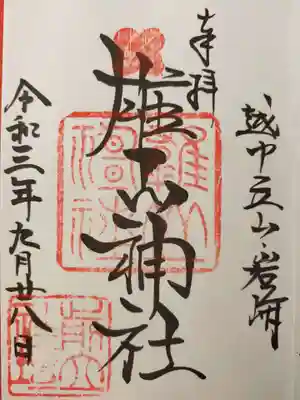 越中立山・岩峅
奉拝
雄山神社
雄山神社
令和三年九月廿八日